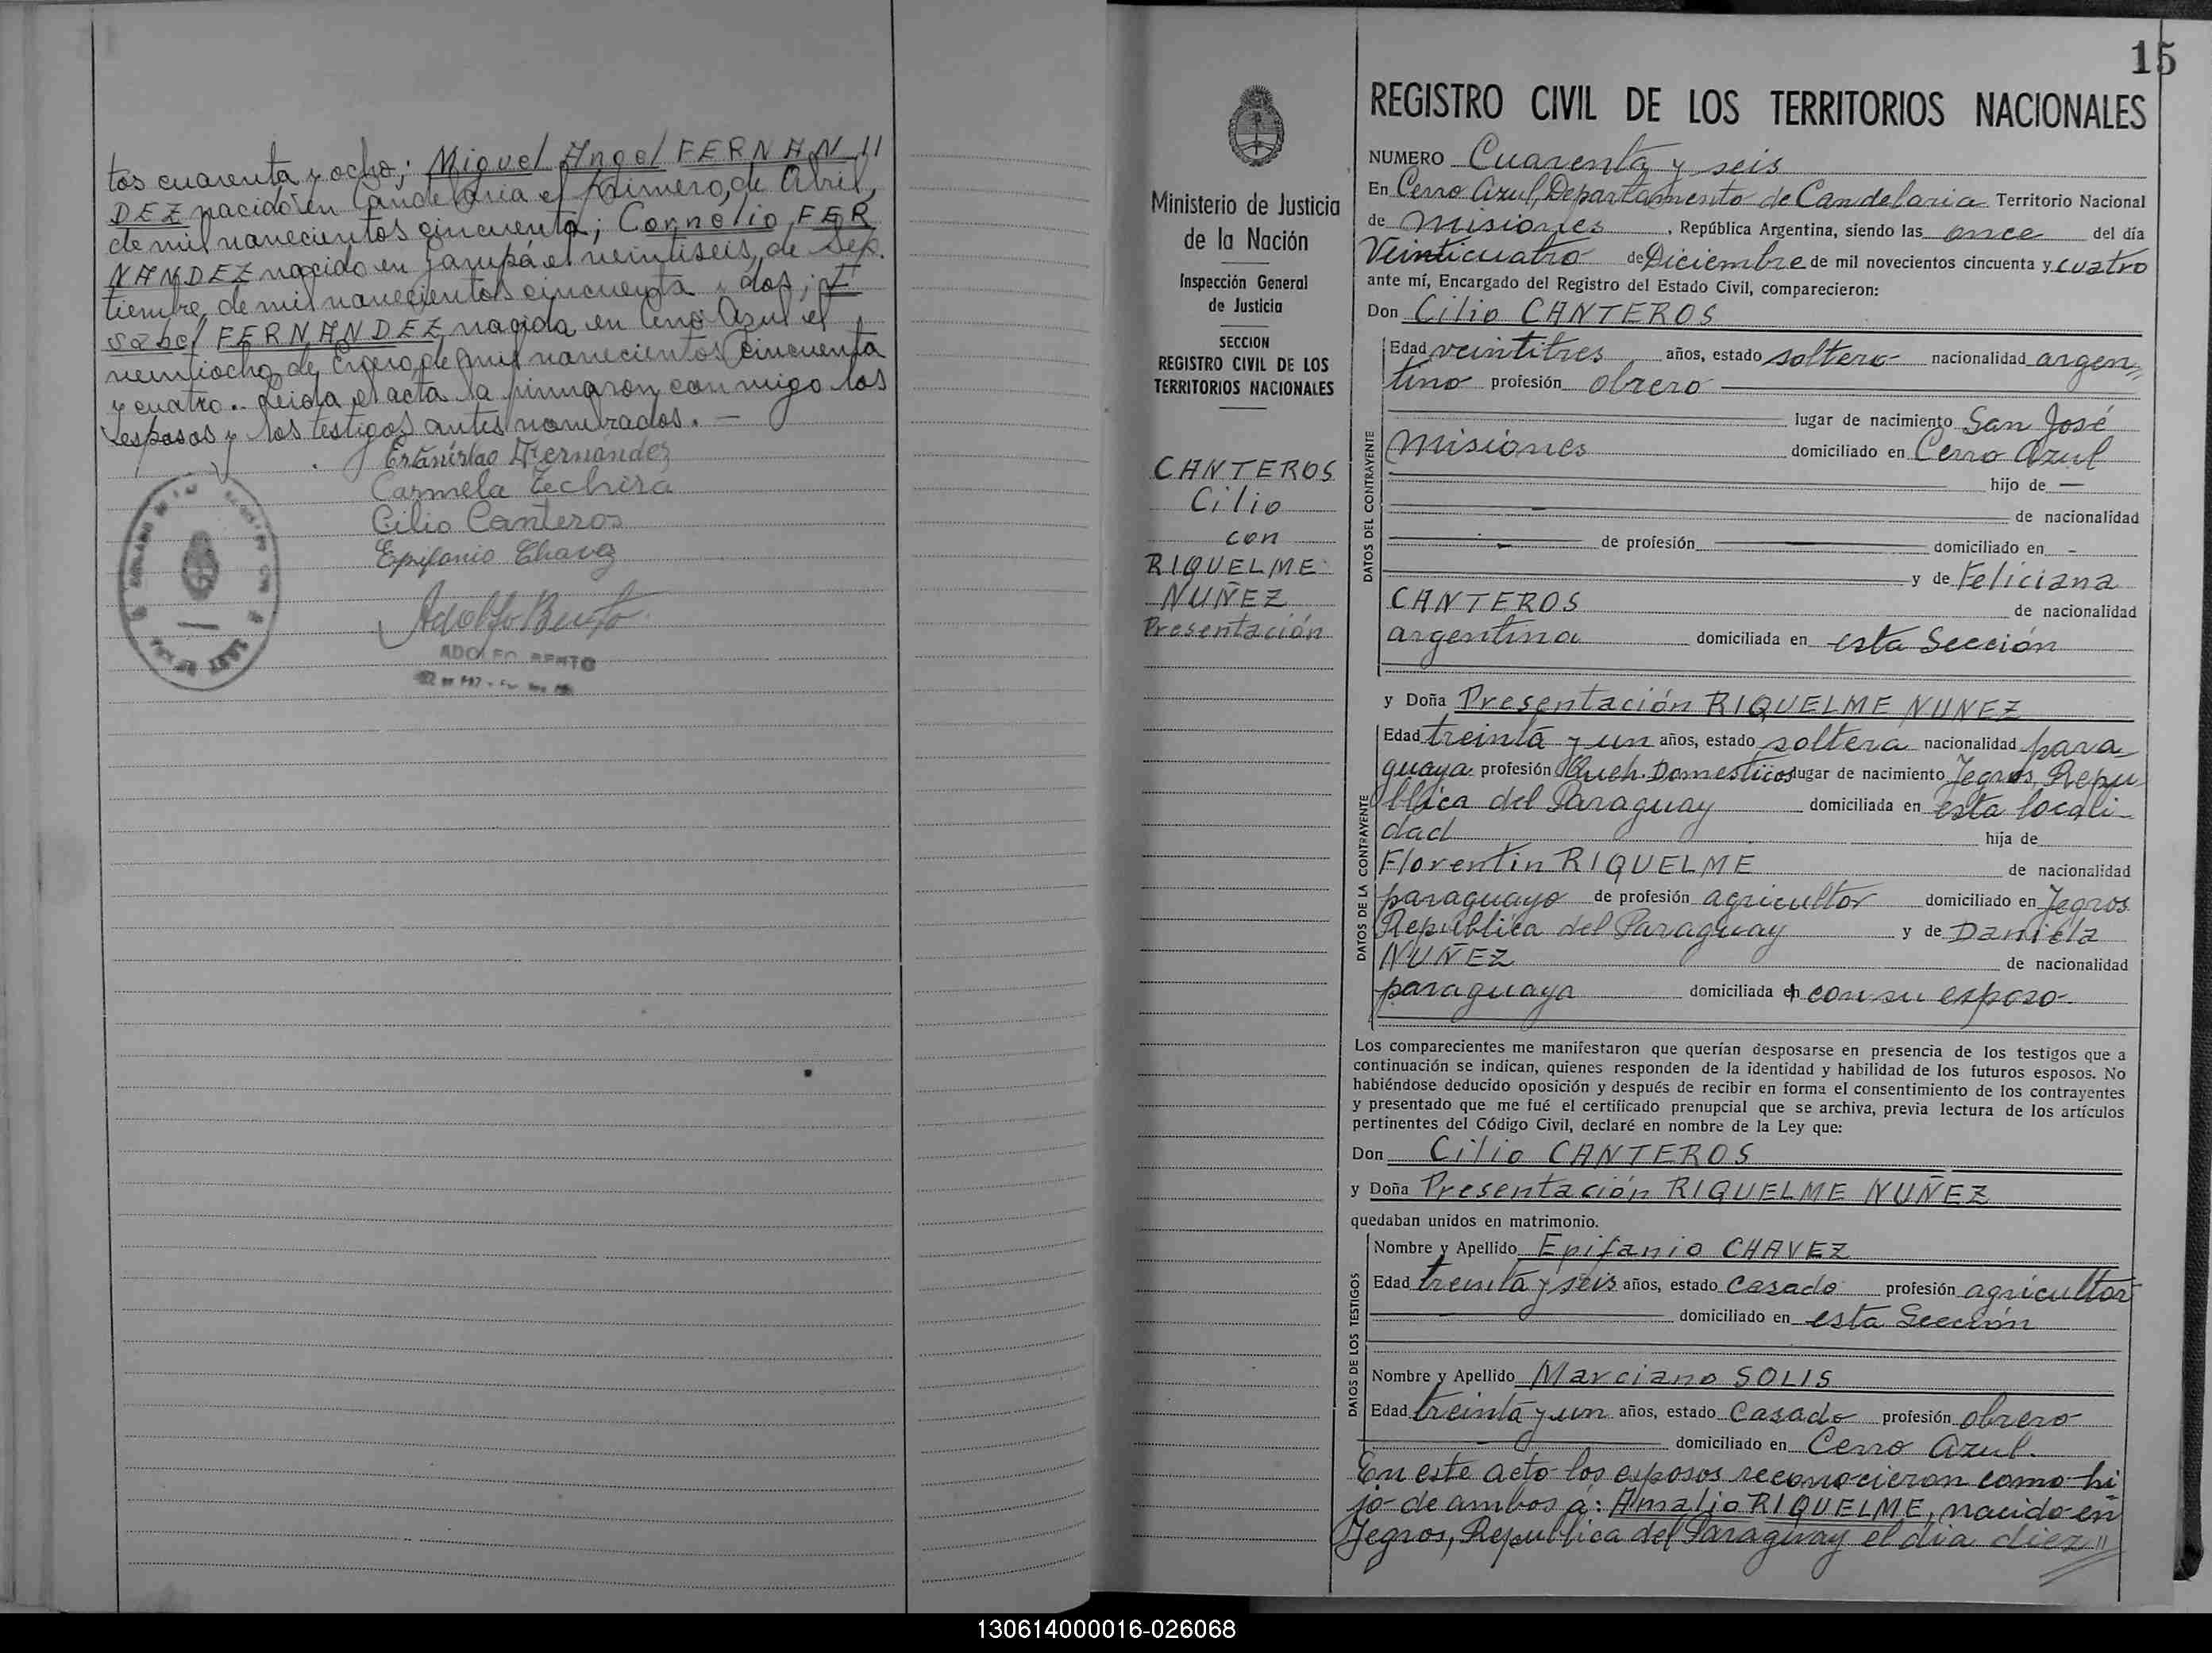 tos cuarenta y ocho; Miguel Angel FERNAN"
DEZ nacido en Candelaria el primero, de Abril,
de mil novecientos cincuenta; Cornelio FER
NANDEZ nacido en Garupá el veintiseis, de Sep.
tiembre, de mil novecientos cincuenta y dos; I
sabel FERNANDEZ nacida en Cerro Azul el
veintiocho de Enero de mil novecientos cincuenta
y cuatro. Leida el acta la firmaron conmigo los
esposos y los testigos antes nombrados. —
Estánislao Fernández
Carmela Techira
Cilio Canteros
Epifanio Chavez
Adolfo Bento
ADOLFO BENTO
15
Ministerio de Justicia
de la Nación
Inspección General
de Justicia
SECCION
REGISTRO CIVIL DE LOS
TERRITORIOS NACIONALES
CANTEROS
Cilio
con
RIQUELME
NUÑEZ
Presentación
REGISTRO CIVIL DE LOS TERRITORIOS NACIONALES
NUMERO Cuarenta y seis
En Cerro Azul, Departamento de Candelaria Territorio Nacional
de Misiones, República Argentina, siendo las once del día
Veinticuatro de Diciembre de mil novecientos cincuenta y cuatro
ante mí, Encargado del Registro del Estado Civil, comparecieron:
Don Cilio CANTEROS
DATOS DEL CONTRAYENTE
Edad veintitres años, estado soltero nacionalidad argen"
tino profesión obrero
lugar de nacimiento San José
Misiones domiciliado en Cerro Azul
hijo de —
de nacionalidad
de profesión domiciliado en -
y de Feliciana
CANTEROS de nacionalidad
argentina domiciliada en esta Sección
y Doña Presentación RIQUELME NUNEZ
DATOS DE LA CONTRAYENTE
Edad treinta y un años, estado soltera nacionalidad para
guaya profesión Queh. Domesticos lugar de nacimiento Jegros, Repu
blica del Paraguay domiciliada en esta locali-
dad hija de
Florentin RIQUELME de nacionalidad
paraguayo de profesión agricultor domiciliado en Jegros
Republica del Paraguay y de Daniela
NUÑEZ de nacionalidad
paraguaya domiciliada en con su esposo.
Los comparecientes me manifestaron que querían desposarse en presencia de los testigos que a
continuación se indican, quienes responden de la identidad y habilidad de los futuros esposos. No
habiéndose deducido oposición y después de recibir en forma el consentimiento de los contrayentes
y presentado que me fué el certificado prenupcial que se archiva, previa lectura de los artículos
pertinentes del Código Civil, declaré en nombre de la Ley que:
Don Cilio CANTEROS
y Doña Presentación RIQUELME NUÑEZ
quedaban unidos en matrimonio.
DATOS DE LOS TESTIGOS
Nombre y Apellido Epifanio CHAVEZ
Edad treinta y seis años, estado Casado profesión agricultor
domiciliado en esta Sección
Nombre y Apellido Marciano SOLIS
Edad treinta y un años, estado Casado profesión obrero
domiciliado en Cerro Azul.
En este acto los esposos reconocieron como hi
jo de ambos á: Amalio RIQUELME, nacido en
Jegros, Republica del Paraguay el dia diez"
130614000016-026068